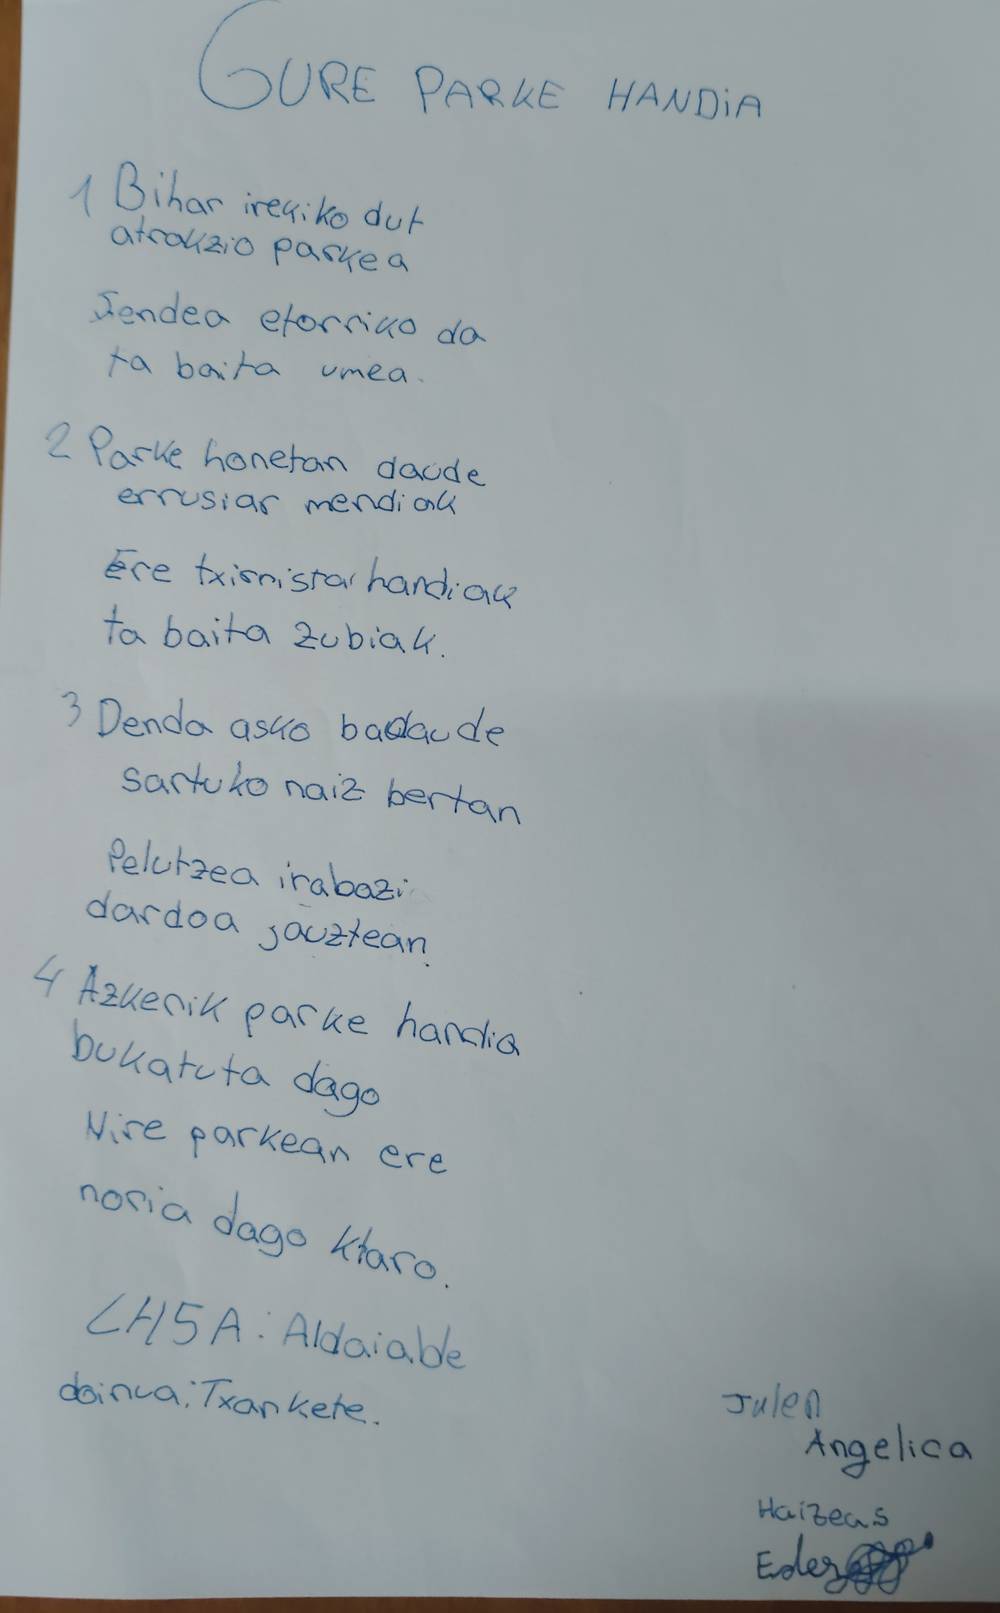 GURE PARKE HANDiA
1 Bihar irekiko dut
atrakzio parkea
Jendea etorriko da
ta baita umea.
2 Parke honetan daude
errusiar mendiak
Ere tximista handiak
ta baita zubiak.
3 Denda asko badaude
sartuko naiz bertan
Pelutzea irabazi
dardoa jauztean.
4 Azkenik parke handia
bukatuta dago
Nire parkean ere
noria dago klaro.
LH5A: Aldaiable
doinua: Txankete.
Julen
Angelica
Haizeas
Eder